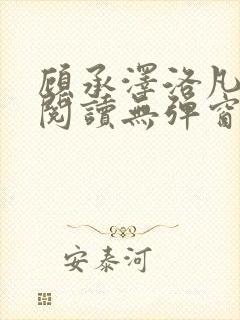 顧承澤洛凡
閱讀無彈窗
安泰河